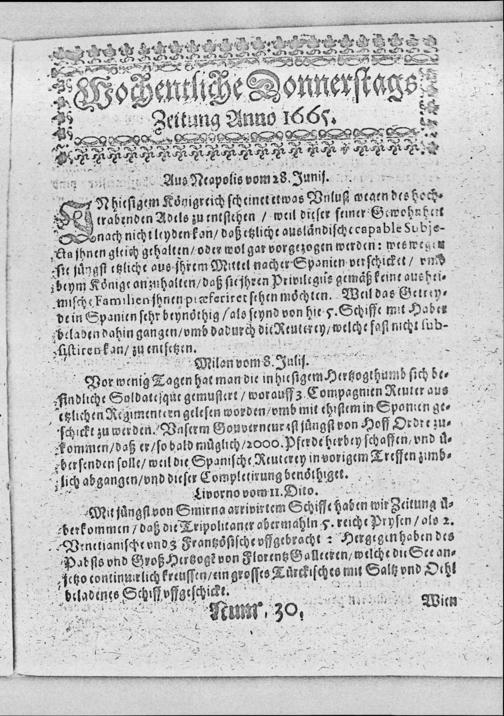 Wochentliche Donnerstags
Zeitung Anno 1665.
Aus Neapolis vom 28. Junij.
IN hiesigem Königreich scheinet etwas Vnlust wegen des hoch-
trabenden Adels zu entstehen / weil dieser seiner Gewohnheit
nach nicht leyden kan / daß etzliche ausländische capable Subje-
cta jhnen gleich gehalten / oder wol gar vorgezogen werden: weswegen
sie jüngst etzliche aus jhrem Mittel nacher Spanien verschicket / vmb
beym Könige anzuhalten / daß sie jhren Privilegiis gemäß keine aus hei-
mische Familien jhnen præferiret sehen möchten. Weil das Getrey-
de in Spanien sehr benöthig / als seynd von hie 5. Schiffe mit Haber
beladen dahin gangen / vmb dadurch die Reuterey / welche fast nicht sub-
sistiren kan / zu entsetzen.
Milan vom 8. Julij.
Vor wenig Tagen hat man die in hiesigem Hertzogthumb sich be-
findliche Soldatesque gemustert / worauff 3. Compagnien Reuter aus
etzlichen Regimentern gelesen worden / vmb mit ehistem in Spanien ge-
schickt zu werden. Vnserm Gouverneur ist jüngst von Hoff Ordre zu-
kommen / daß er / so bald müglich / 2000. Pferde herbey schaffen / vnd ü-
bersenden solle / weil die Spanische Reuterey in vorigem Treffen zimb-
lich abgangen / vnd dieser Completirung benöthiget.
Livorno vom 11. Dito.
Mit jüngst von Smirna arrivirtem Schiffe haben wir Zeitung ü-
berkommen / daß die Tripolitaner abermahln 5. reiche Prysen / als 2.
Venetianische vnd 3 Frantzösische vffgebracht: Hergegen haben des
Pabsts vnd Groß-Hertzogs von Florentz Galleeren / welche die See an-
jetzo continuirlich kreussen / ein grosses Türckisches mit Saltz vnd Oehl
beladenes Schiff vffgeschickt.
Num. 30.
Wien